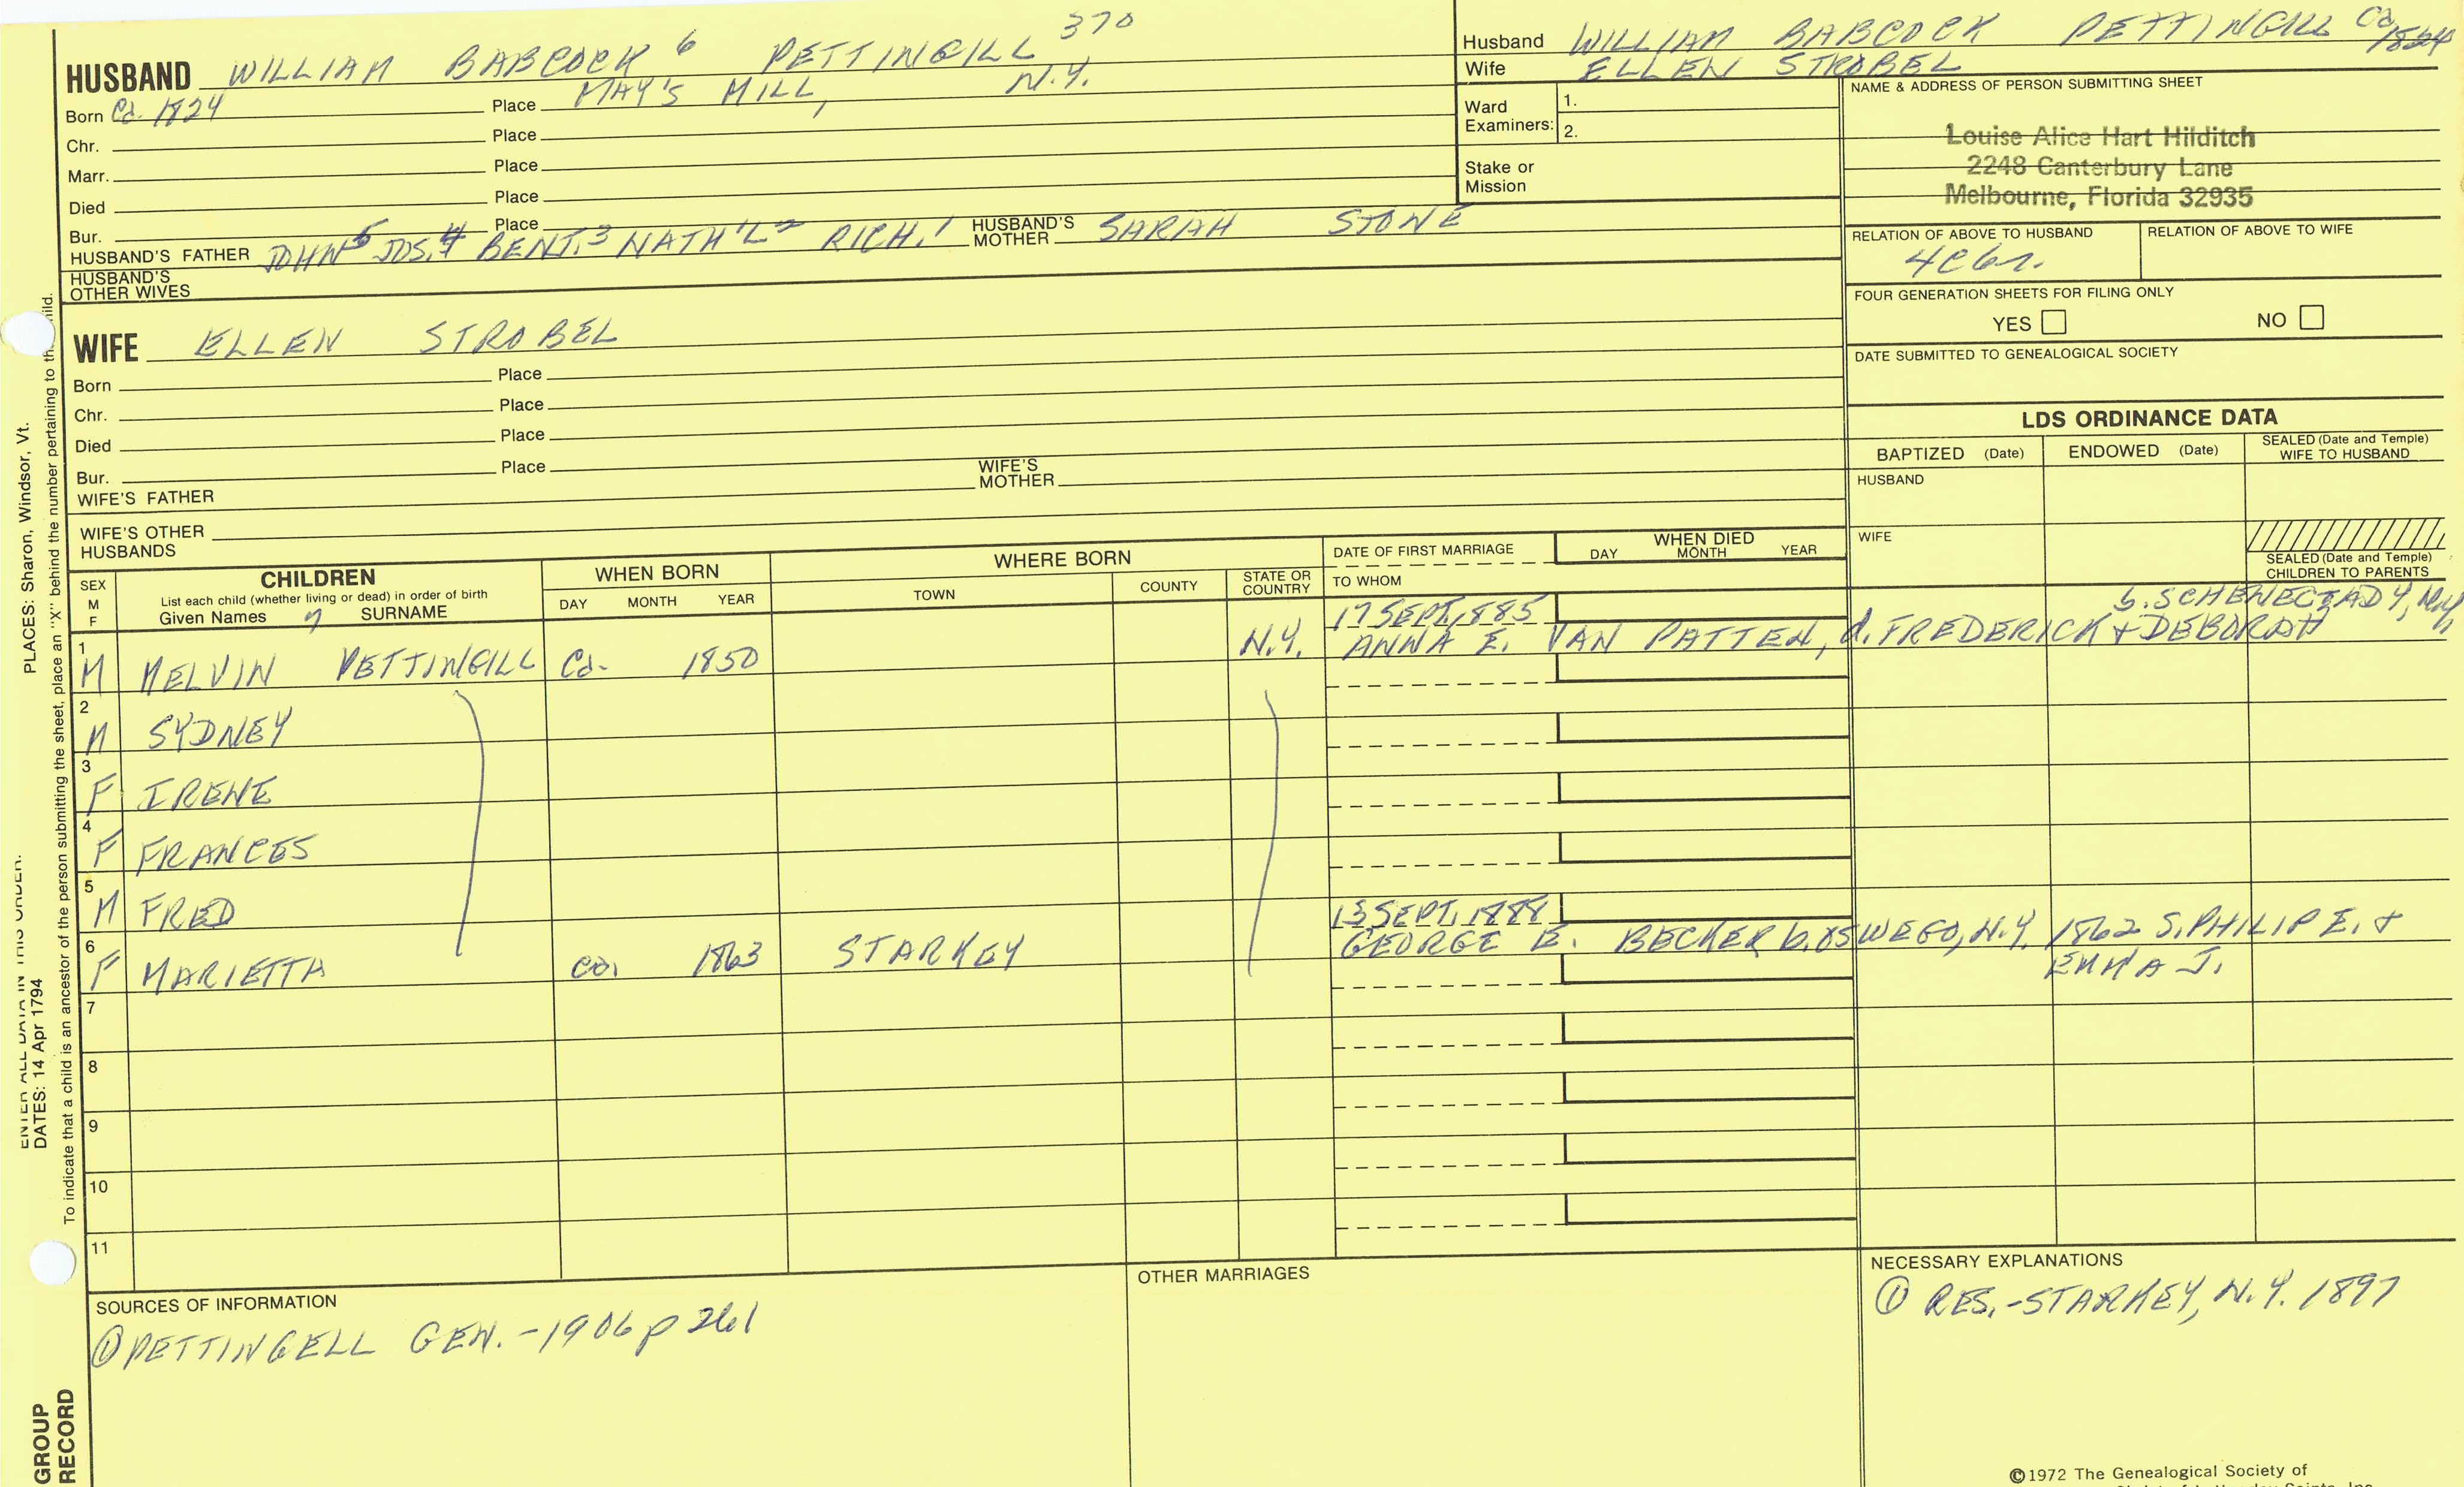 HUSBAND WILLIAM BABCOCK 6 PETTINGILL 370
Born Ca. 1824 Place MAY'S MILL, N.Y.
Chr. Place
Marr. Place
Died Place
Bur. Place
HUSBAND'S FATHER JOHN 5 JOS. 4 BENJ. 3 NATH'L 2 RICH. 1 HUSBAND'S MOTHER SARAH STONE
HUSBAND'S OTHER WIVES
WIFE ELLEN STROBEL
Born Place
Chr. Place
Died Place
Bur. Place
WIFE'S FATHER WIFE'S MOTHER
WIFE'S OTHER HUSBANDS
Husband WILLIAM BABCOCK PETTINGILL Ca 1824
Wife ELLEN STROBEL
Ward Examiners: 1.
2.
Stake or Mission
NAME & ADDRESS OF PERSON SUBMITTING SHEET
Louise Alice Hart Hilditch
2248 Canterbury Lane
Melbourne, Florida 32935
RELATION OF ABOVE TO HUSBAND RELATION OF ABOVE TO WIFE
4C6r.
FOUR GENERATION SHEETS FOR FILING ONLY
YES NO
DATE SUBMITTED TO GENEALOGICAL SOCIETY
LDS ORDINANCE DATA
BAPTIZED (Date) ENDOWED (Date) SEALED (Date and Temple) WIFE TO HUSBAND
HUSBAND
WIFE
SEALED (Date and Temple)
CHILDREN TO PARENTS
SEX M F CHILDREN
List each child (whether living or dead) in order of birth
Given Names 7 SURNAME
WHEN BORN
DAY MONTH YEAR
WHERE BORN
TOWN COUNTY STATE OR COUNTRY
DATE OF FIRST MARRIAGE
TO WHOM
WHEN DIED
DAY MONTH YEAR
17 SEPT, 1885 b. SCHENECTADY, N.Y.
1 M MELVIN PETTINGILL Ca. 1850 N.Y. ANNA E. VAN PATTEN, d. FREDERICK + DEBORAH
2 M SYDNEY
3 F IRENE
4 F FRANCES
5 M FRED
13 SEPT, 1888
6 F MARIETTA Ca. 1863 STARKEY GEORGE E. BECKER b. OSWEGO, N.Y. 1862 S. PHILIP E. +
EMMA J.
7
8
9
10
11
SOURCES OF INFORMATION
① PETTINGELL GEN. - 1906 p 261
OTHER MARRIAGES
NECESSARY EXPLANATIONS
① RES. - STARKEY, N.Y. 1897
©1972 The Genealogical Society of
PLACES: Sharon, Windsor, Vt.
ENTER ALL DATA IN THIS ORDER:
DATES: 14 Apr 1794
To indicate that a child is an ancestor of the person submitting the sheet, place an "X" behind the number pertaining to that child.
GROUP
RECORD